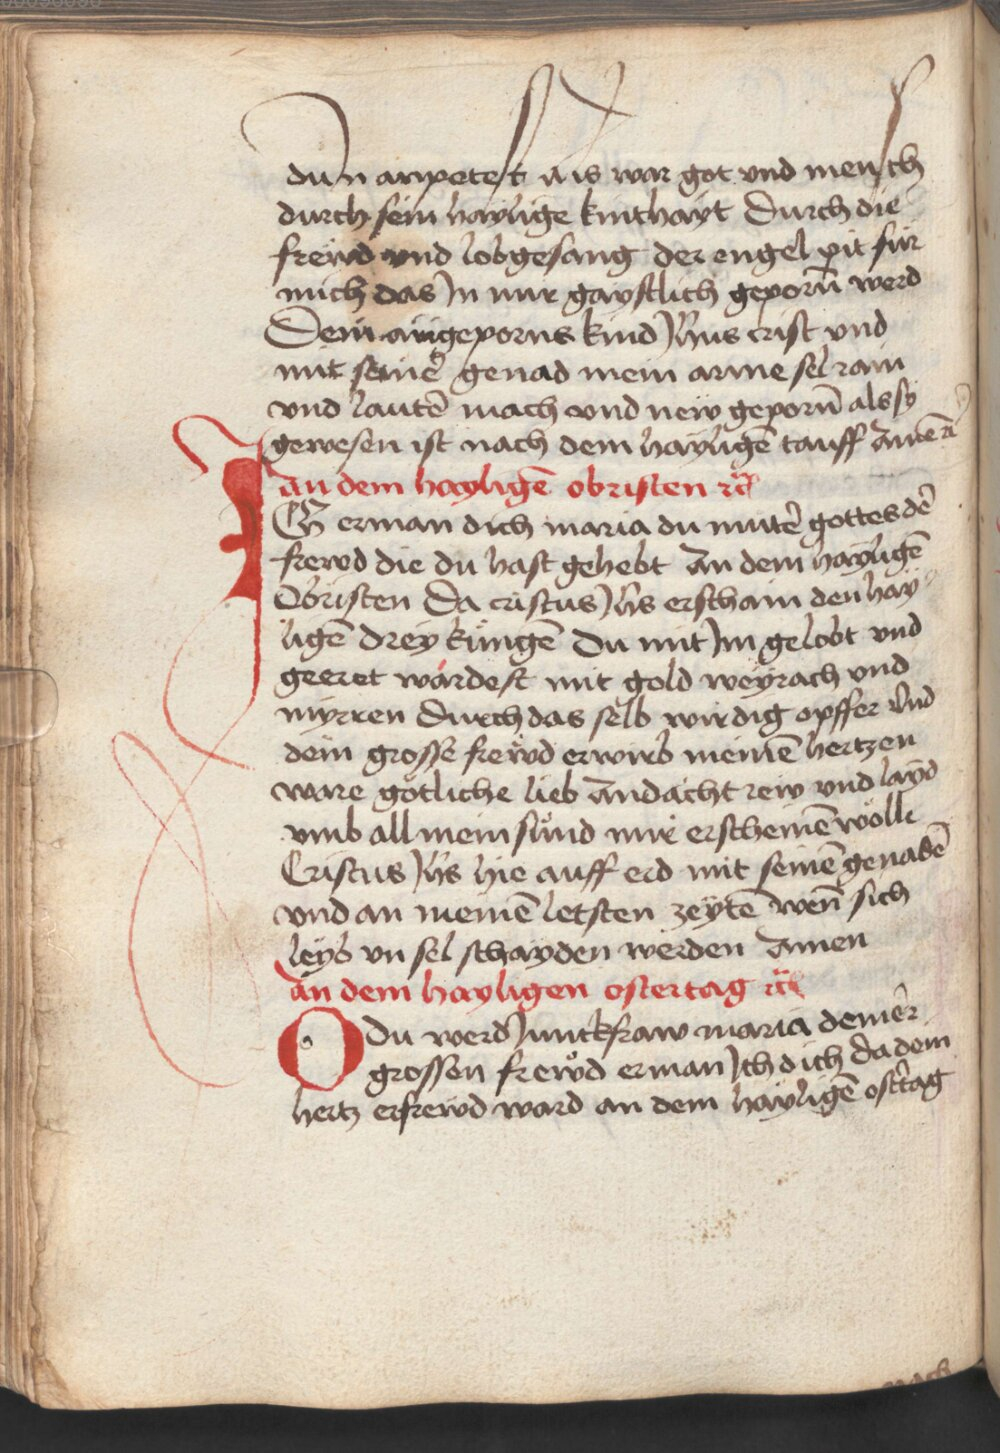 du in anpetest als war got vnd mensch
durch sein haylige kinthayt Durch die
frewd vnd lobgesang der engel pit für
mich das Jn mir gaystlich geporn̄ werd
Dein aingeporns kind Jhus crist vnd
mit seiner genad mein arme sel rain
vnd lautē mach vnd new geporn̄ als sy
gewesen ist nach dem hayligē tauff Amen
an dem hayligē obristen rc̄
Ich erman dich maria du mutē gottes dē
frewd die du hast gehebt An dem hayligē
Obristen Da cristus Jhs erschain den hay
ligē drey küngē Du mit Jm gelobt vnd
geeret wardest mit gold weyrach vnd
myrren Durch das selb wirdig opffer vnd
dein grosse frewd erwirb meinē hertzen
ware götliche lieb Andacht rew vnd layd
vmb all mein sünd mir erscheinē wölle
Cristus Jhs hie auff erd mit seinē genadē
vnd an meinē letsten zeytē wen̄ sich
leyb vn sel schayden werden Amen
an dem hayligen ostertag rc̄
O du werd Junckfraw maria deiner
grossen frewd erman Ich dich Da dein
hertz erfrewd ward an dem hayligē ostertag